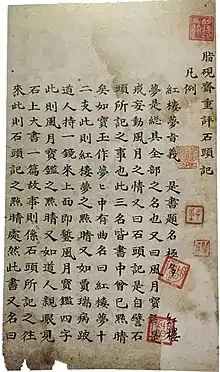 脂硯齋重評石頭記
凡例
紅樓夢旨義 是書題名極多 紅樓
夢是總其全部之名也又曰風月寶鑑是
戒妄動風月之情又曰石頭記是自譬石
頭所記之事也此三名皆書中曾已點睛
矣如寶玉作夢々中有曲名曰紅樓夢十
二支此則紅樓夢之點睛又如賈瑞病跛
道人持一鏡來上面即鏨風月寶鑑四字
此則風月寶鑑之點睛又如道人親眼見
石上大書一篇故事則係石頭所記之往
來此則石頭記之點睛處然此書又名曰